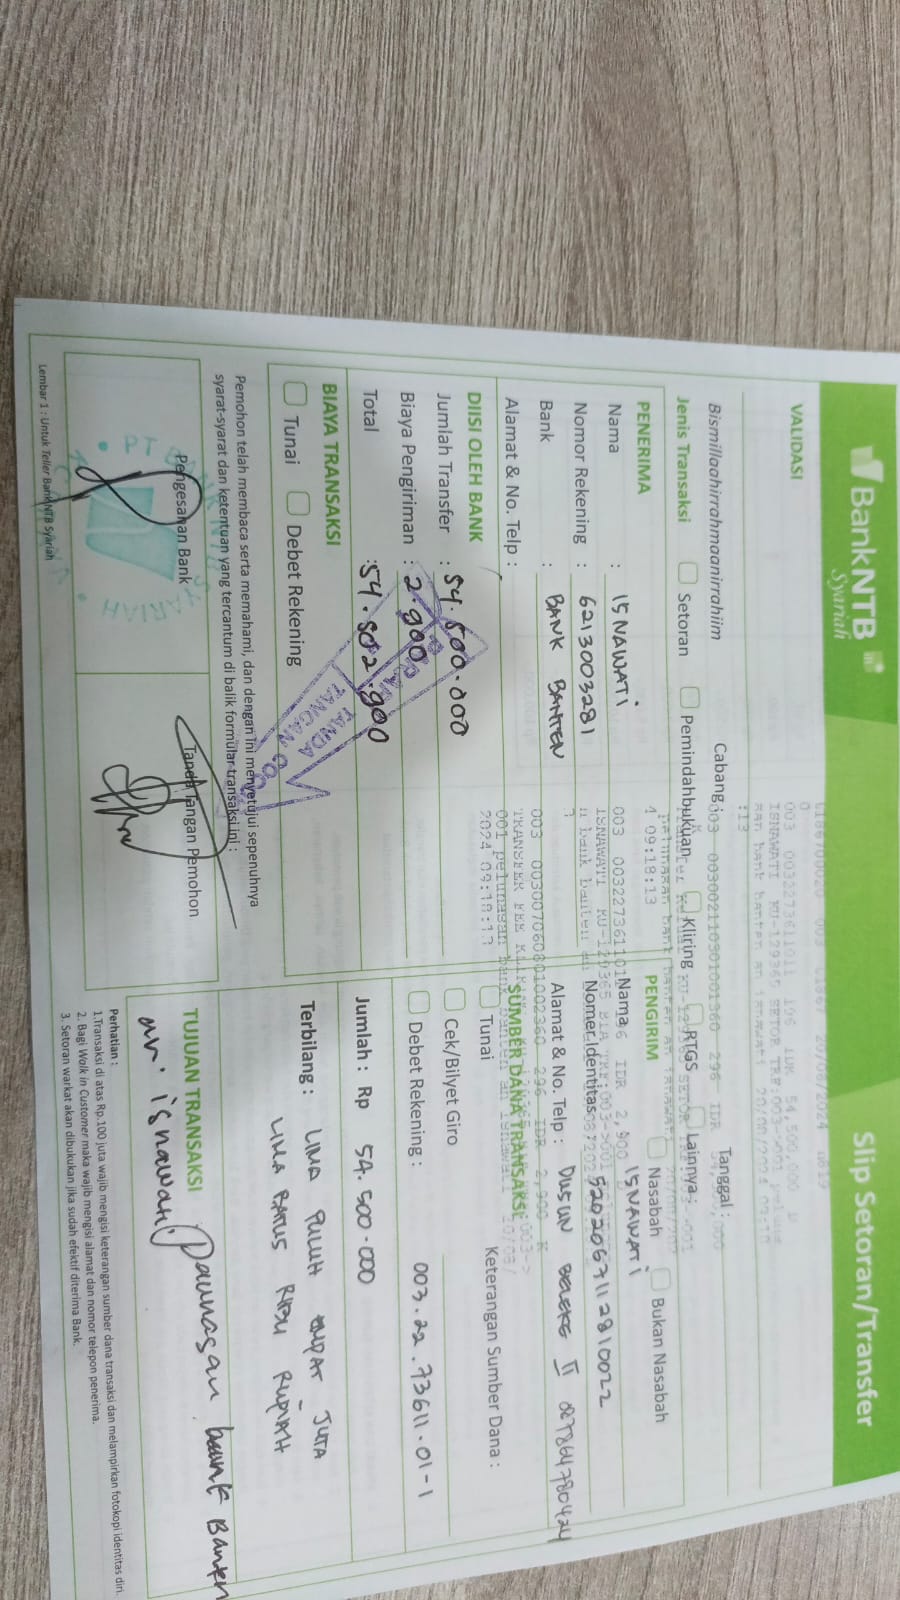 BankNTB
Syariah
Slip Setoran/Transfer
VALIDASI
20/08/2024
003 0032273611011 106 IDR 54,500,000
ISNAWATI KU-12936S SETOR TRF:003->001
an bank banten an isnawati
:13
Bismillaahirrahmaanirrahiim
Cabang :
Tanggal :
003 003002110301001360 296 IDR
Jenis Transaksi
Setoran
Pemindahbukuan
Kliring
RTGS
Lainnya :
pelunasan bank banten an isnawati
4 09:18:13
PENERIMA
Nama : ISNAWATI
Nomor Rekening : 6213003281
Bank : BANK BANTEN
Alamat & No. Telp :
PENGIRIM
Nasabah
Bukan Nasabah
003 0032273611011 IDR 2,900
Nama ISNAWATI
Nomer Identitas 5202067112810022
Alamat & No. Telp : DUSUN BELEKE II 087864780424
003 003007060801002360 296 IDR 2,900 K
TRANSFER FEE
001 pelunasan bank banten an isnawati
2024 09:18:13
DIISI OLEH BANK
Jumlah Transfer : 54.500.000
Biaya Pengiriman : 2.900
Total : 54.502.900
TANDA
TANGAN COCOK
SUMBER DANA TRANSAKSI
Tunai
Keterangan Sumber Dana :
Cek/Bilyet Giro
Debet Rekening : 003.22.73611.01-1
BIAYA TRANSAKSI
Tunai
Debet Rekening
Jumlah : Rp 54.500.000
Terbilang : LIMA PULUH EMPAT JUTA
LIMA RATUS RIBU RUPIAH
Pemohon telah membaca serta memahami, dan dengan ini menyetujui sepenuhnya
syarat-syarat dan ketentuan yang tercantum di balik formulir transaksi ini :
Pengesahan Bank
Tanda Tangan Pemohon
TUJUAN TRANSAKSI Pelunasan bank Banten
an. isnawati
Perhatian :
1.Transaksi di atas Rp.100 juta wajib mengisi keterangan sumber dana transaksi dan melampirkan fotokopi identitas diri.
2. Bagi Walk in Customer maka wajib mengisi alamat dan nomor telepon penerima.
3. Setoran warkat akan dibukukan jika sudah efektif diterima Bank.
Lembar 1 : Untuk Teller Bank NTB Syariah